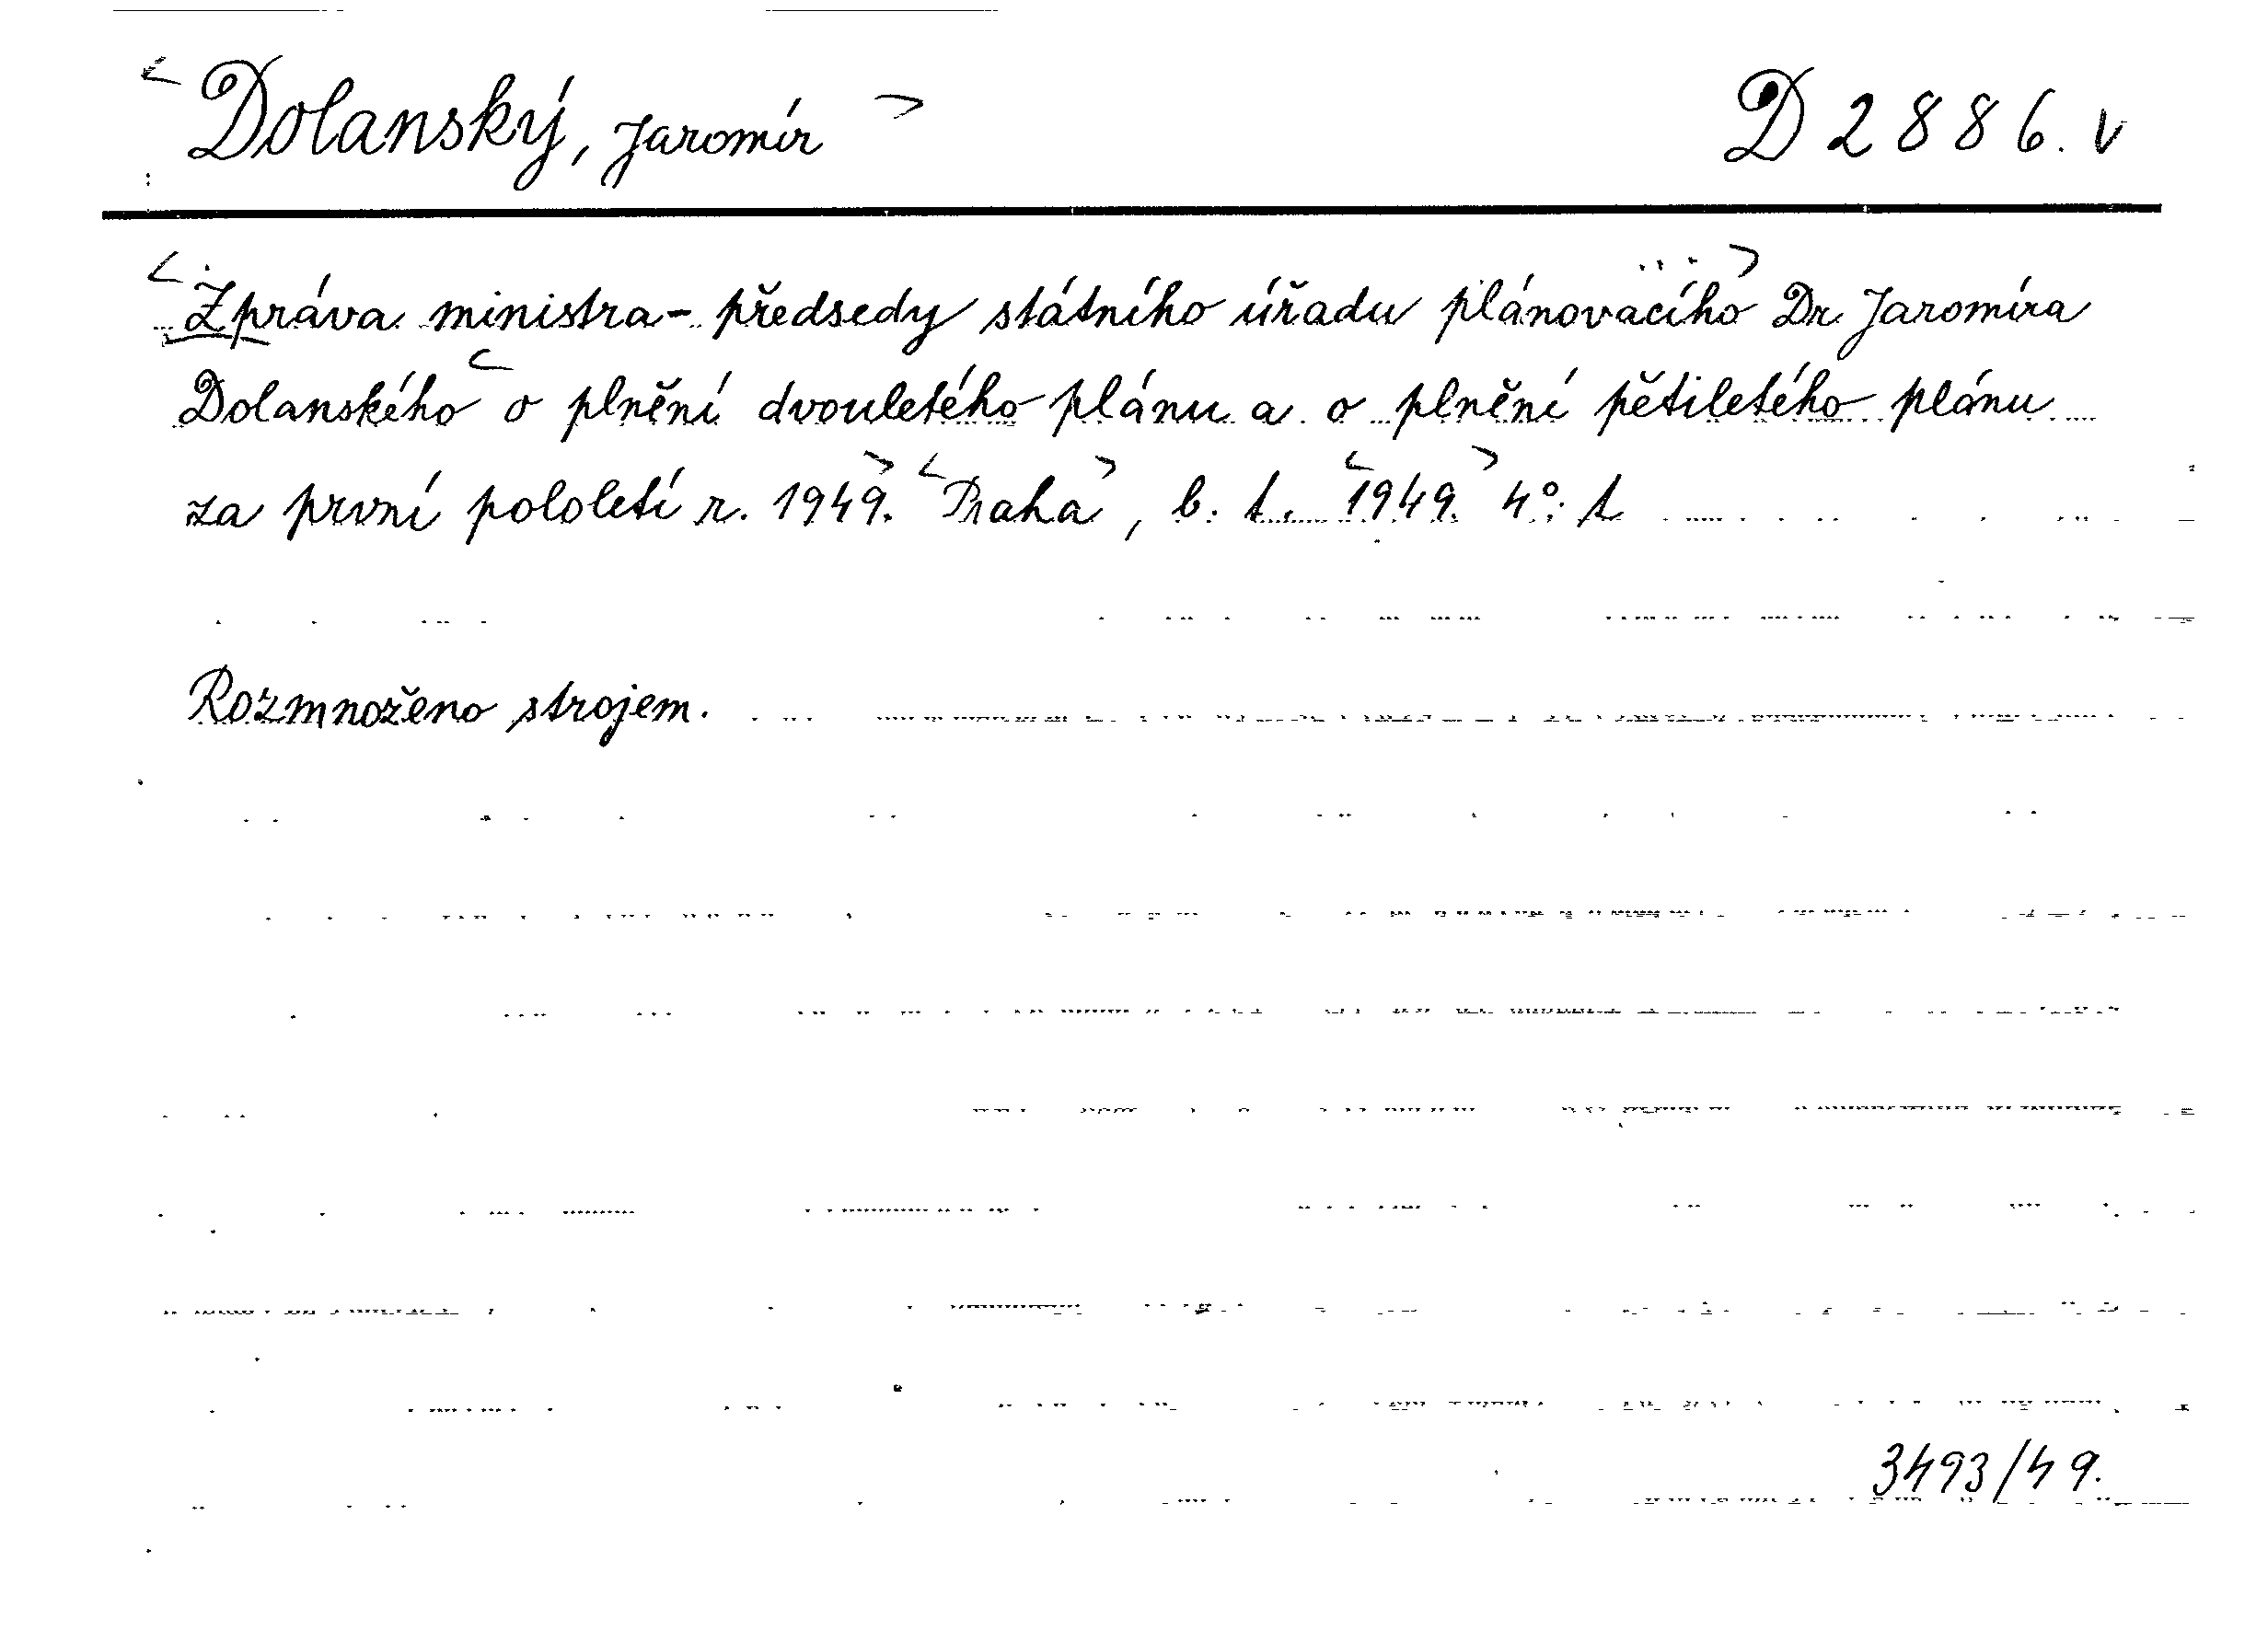 <Dolanský, Jaromír> D 2886. v
<Zpráva ministra-předsedy státního úřadu plánovacího ...> Dr. Jaromíra
Dolanského <o plnění dvouletého plánu a o plnění pětiletého plánu
za první pololetí r. 1949.> <Praha>, b. t. <1949.> 4°. t
Rozmnoženo strojem.
3493/49.